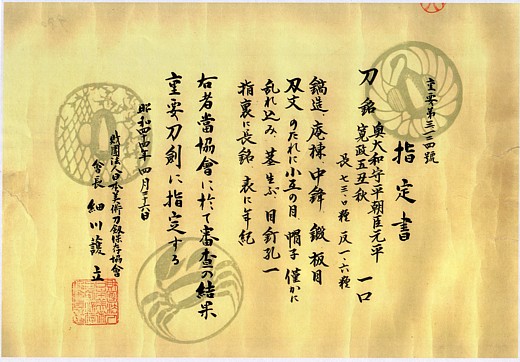 重要第三一四號
指定書
刀 銘 奥大和守平朝臣元平 一口
寛政五丑秋
長 七三・〇糎 反 一・六糎
鎬造、庵棟、中鋒 鍛 板目
刃文 のたれに小互の目 帽子 僅かに
乱れ込み 茎 生ぶ、目釘孔一
指裏に長銘 表に年紀
右者當協會に於て審査の結果
重要刀剣に指定する
昭和四十四年 四月二十六日
財團法人日本美術刀剣保存協會
會長 細川護立